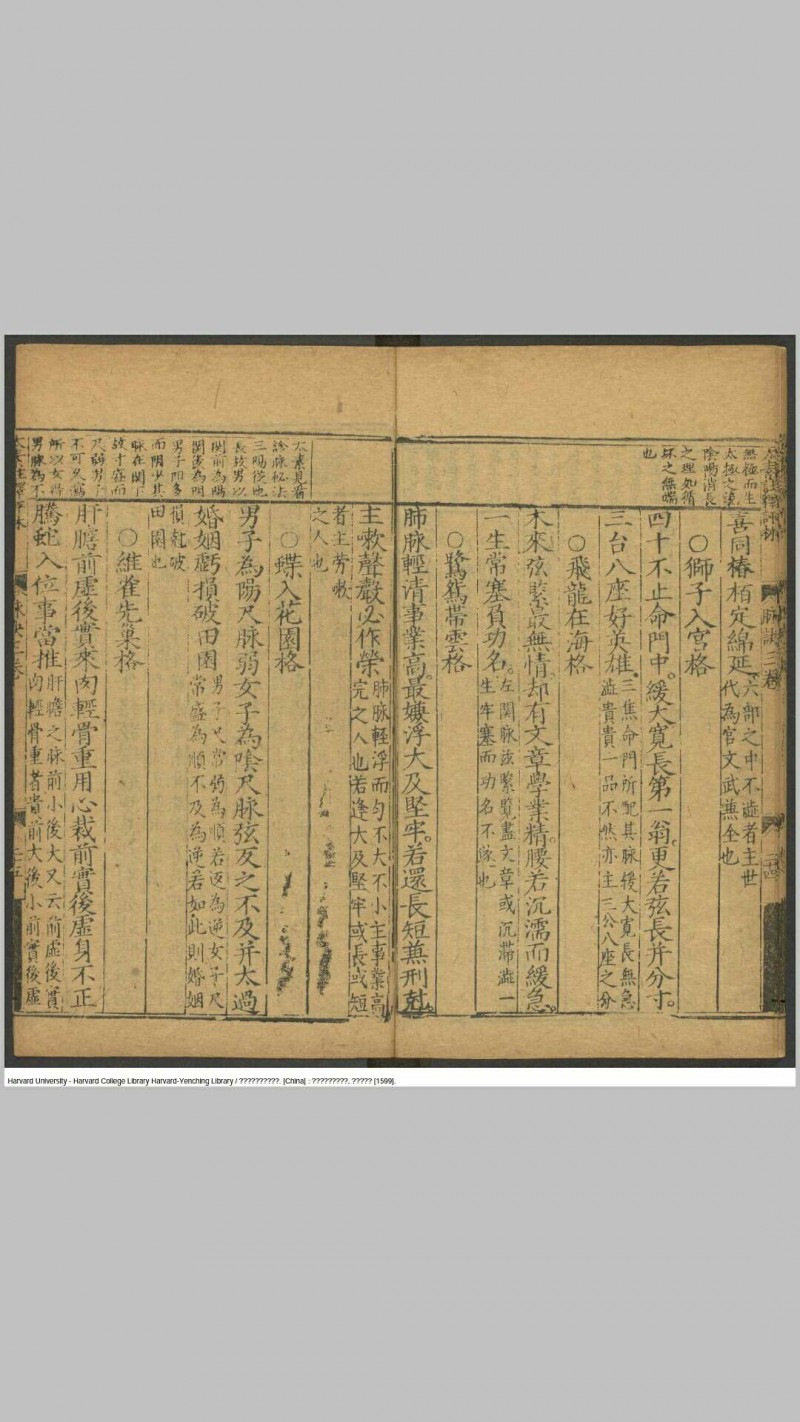 無極而生
太極之後
陰陽消長
之理如循
环之無端
也
喜同椿栢定綿延六部之中不澁者主世
代為官文武無全也
○獅子入宮格
四十不止命門中緩大寬長第一翁更若弦長并分寸
三台八座好英雄三焦命門所配其脉緩大寬長無急
澁貴貴一品不然亦主三公八座之分
○飛龍在海格
木來弦緊最無情却有文章學業精腰若沉濡而緩急
一生常塞負功名左関脉弦緊覽盡文章或沉滯澁一
生牢塞而功名不遂也
○鴛帶雲格
肺脉輕清事業高最嫌浮大及堅牢若還長短無刑尅
主嗽聲嚴必作榮肺脉輕浮而勻不大不小主事業高
完之人也若逢大及堅牢或長或短
者主劳嗽
之人也
太素見看
診脉秘法
三陽從也
長故男以
関前為陽
関後為阴
男子阳多
而阴少其
脉在関下
故寸盛而
尺弱男子
不可久為
所以女得
男脉為不
○蝶入花園格
男子為陽尺脉弱女子為陰尺脉弦反之不及并太過
婚姻虧損破田園男子尺常弱為順若返為逆女子尺
常盛為順不及為逆若如此則婚姻
損尅破
田園也
○維雀先巢格
肝膽前虛後實來肉輕骨重用心裁前實後虛身不正
騰蛇入位事當推肝膽之脉前小後大又云前虛後實
肉輕骨重者貴前大後小前實後虛
脉訣三卷
Harvard University - Harvard College Library Harvard-Yenching Library / ??????????. [China] : ?????????, ????? [1599].